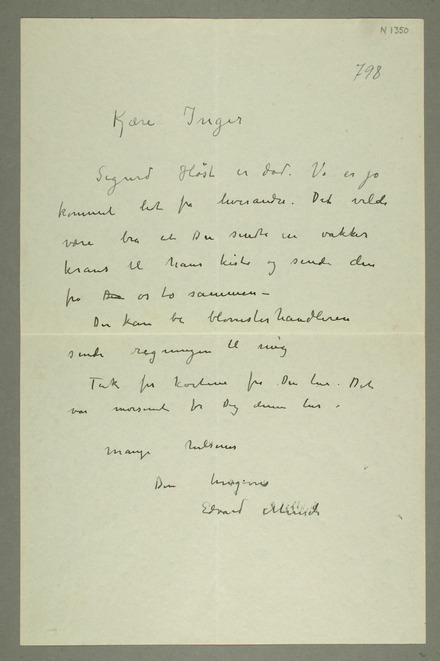 N 1350
798
Kjære Inger
Sigurd Høst er død. Vi er jo
kommet let fra hverandre. Det vilde
være bra at Du sendte en vakker
krans til hans kiste og sende den
fra Dem os to sammen –
Du kan be blomsterhandleren
sende regningen til mig
Tak for kortene fra Din tur. Det
var morsomt for Dig denne tur.
Mange hilsener
Din hengivne
Edvard Munch